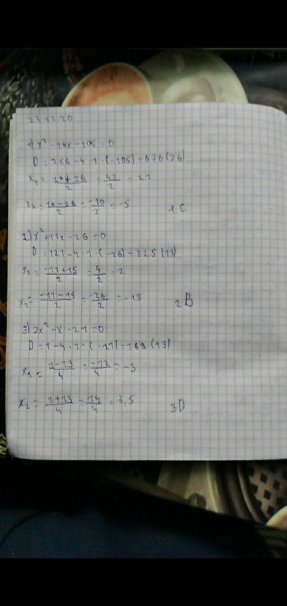 1) x² - 16x - 105 = 0
D = 256 - 4 · 1 · (-105) = 676 (26)
x₁ = 16+26/2 = 42/2 = 21
x₂ = 16-26/2 = -10/2 = -5 1 C
2) x² + 11x - 26 = 0
D = 121 - 4 · 1 · (-26) = 225 (15)
x₁ = -11+15/2 = 4/2 = 2
x₂ = -11-15/2 = -26/2 = -13 2 B
3) 2x² - x - 21 = 0
D = 1 - 4 · 2 · (-21) = 169 (13)
x₁ = 1-13/4 = -12/4 = -3
x₂ = 1+13/4 = 14/4 = 3,5 3 D